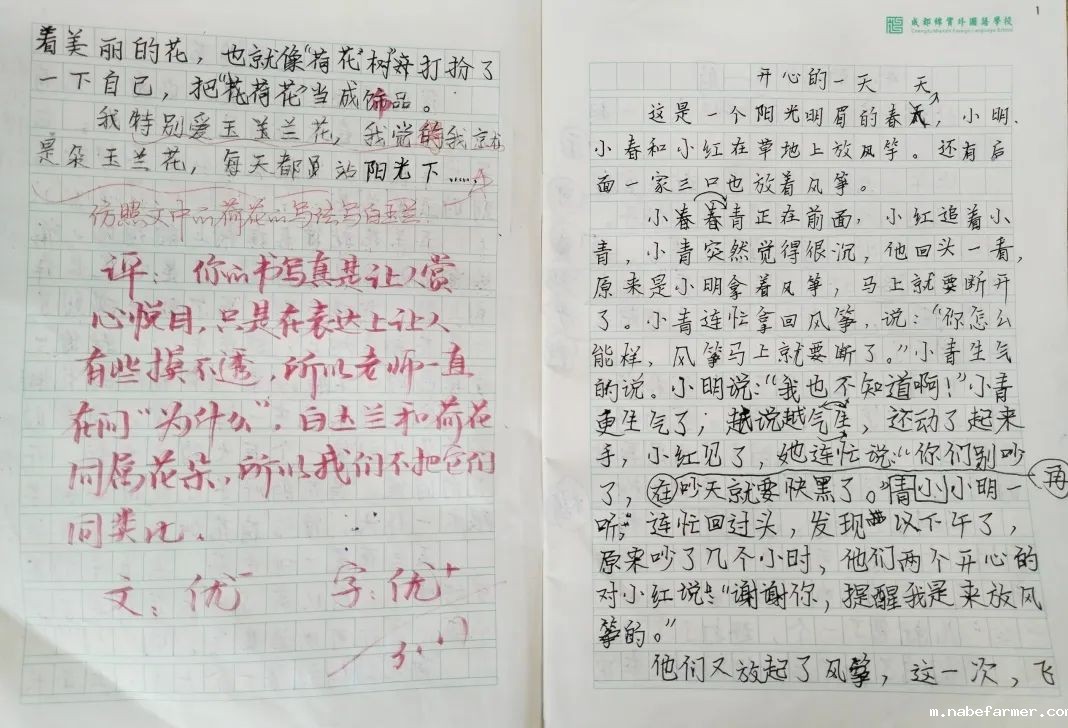 着美丽的花，也就像“荷花”树奔打扮了
一下自己，把“荷花”当成饰品。
我特别爱玉兰花，我觉的我就
是朵玉兰花，每天都站阳光下……
仿照文中的荷花的写法写白玉兰
评：你的书写真是让人赏
心悦目，只是在表达上让人
有些摸不透，所以老师一直
在问“为什么”。白玉兰和荷花
同属花朵，所以我们不把它们
同类比。
文：优- 字：优+
1
成都绵实外国语学校
开心的一天 天
这是一个阳光明眉的春天，小明、
小春和小红在草地上放风筝。还有后
面一家三口也放着风筝。
小春春青正在前面，小红追着小
青，小青突然觉得很沉，他回头一看，
原来是小明拿着风筝，马上就要断开
了。小青连忙拿回风筝，说：“你怎么
能样，风筝马上就要断了。”小青生气
的说。小明说：“我也不知道啊！”小青
更生气了；越说越气，还动了起来
手，小红见了，她连忙说：“你们别吵
了，在吵天就要快黑了。”青小小明一 再
听，连忙回过头，发现以下午了，
原来吵了几个小时，他们两个开心的
对小红说：“谢谢你，提醒我是来放风
筝的。”
他们又放起了风筝，这一次，飞
m.nabefarmer.com